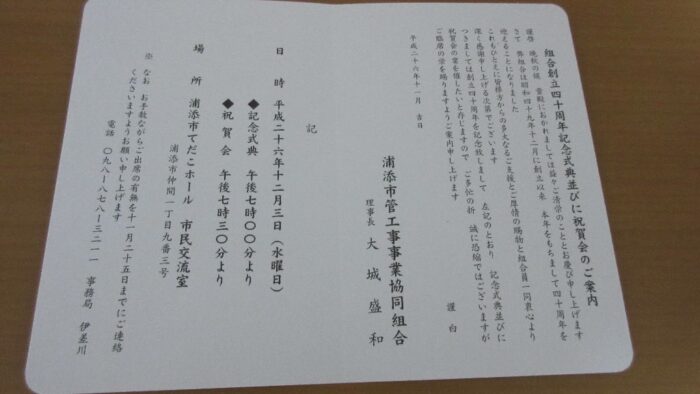 組合創立四十周年記念式典並びに祝賀会のご案内
謹啓 晩秋の候 貴殿におかれましては益々ご清学のこととお慶び申し上げます
さて 弊組合は昭和四十九年十二月に創立以来 本年をもちまして四十周年を
迎えることになりました
これもひとえに皆様方からの多大なるご支援とご厚情の賜物と組合員一同衷心より
深く感謝申し上げる次第でございます
つきましては創立四十周年を記念致しまして 左記のとおり 記念式典並びに
祝賀会の宴を催したいと存じますので ご多忙の折 誠に恐縮ではございますが
ご臨席の栄を賜りますようご案内申し上げます
謹白
平成二十六年十一月 吉日
浦添市管工事事業協同組合
理事長 大城盛和
記
日時 平成二十六年十二月三日(水曜日)
◆記念式典 午後七時〇〇分より
◆祝賀会 午後七時三〇分より
場所 浦添市てだこホール 市民交流室
浦添市仲間一丁目九番三号
※ なお お手数ながらご出席の有無を十一月二十五日までにご連絡
くださいますようお願い申し上げます
電話 〇九八―八七八―三二一一 事務局 伊差川